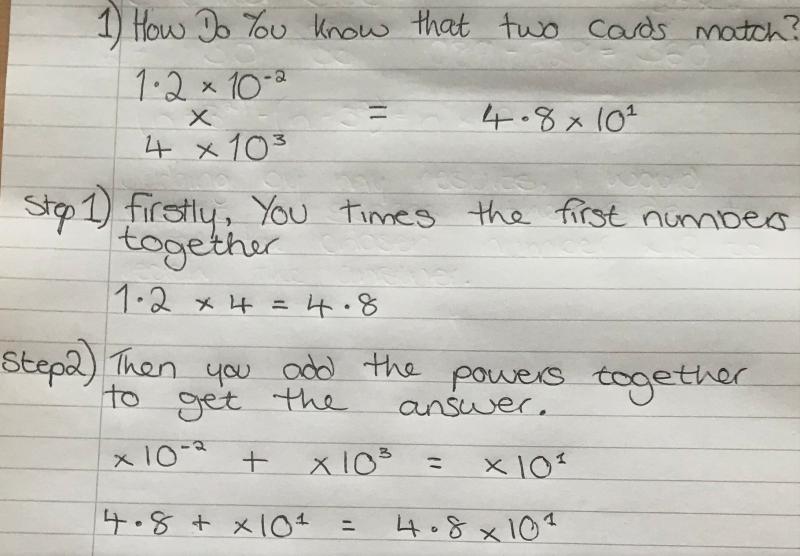 1) How Do You know that two cards match?
1·2 × 10⁻²
×
= 4·8 × 10¹
4 × 10³
Step 1) firstly, You times the first numbers
together
1·2 × 4 = 4·8
Step2) Then you add the powers together
to get the answer.
×10⁻² + ×10³ = ×10¹
4·8 + ×10¹ = 4·8 ×10¹